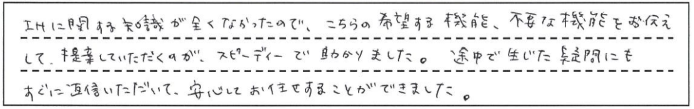 IHに関する知識が全くなかったので、こちらの希望する機能、不要な機能をお伝え
して、提案していただくのが、スピーディーで助かりました。途中で生じた疑問にも
すぐに返信いただいて、安心してお任せすることができました。